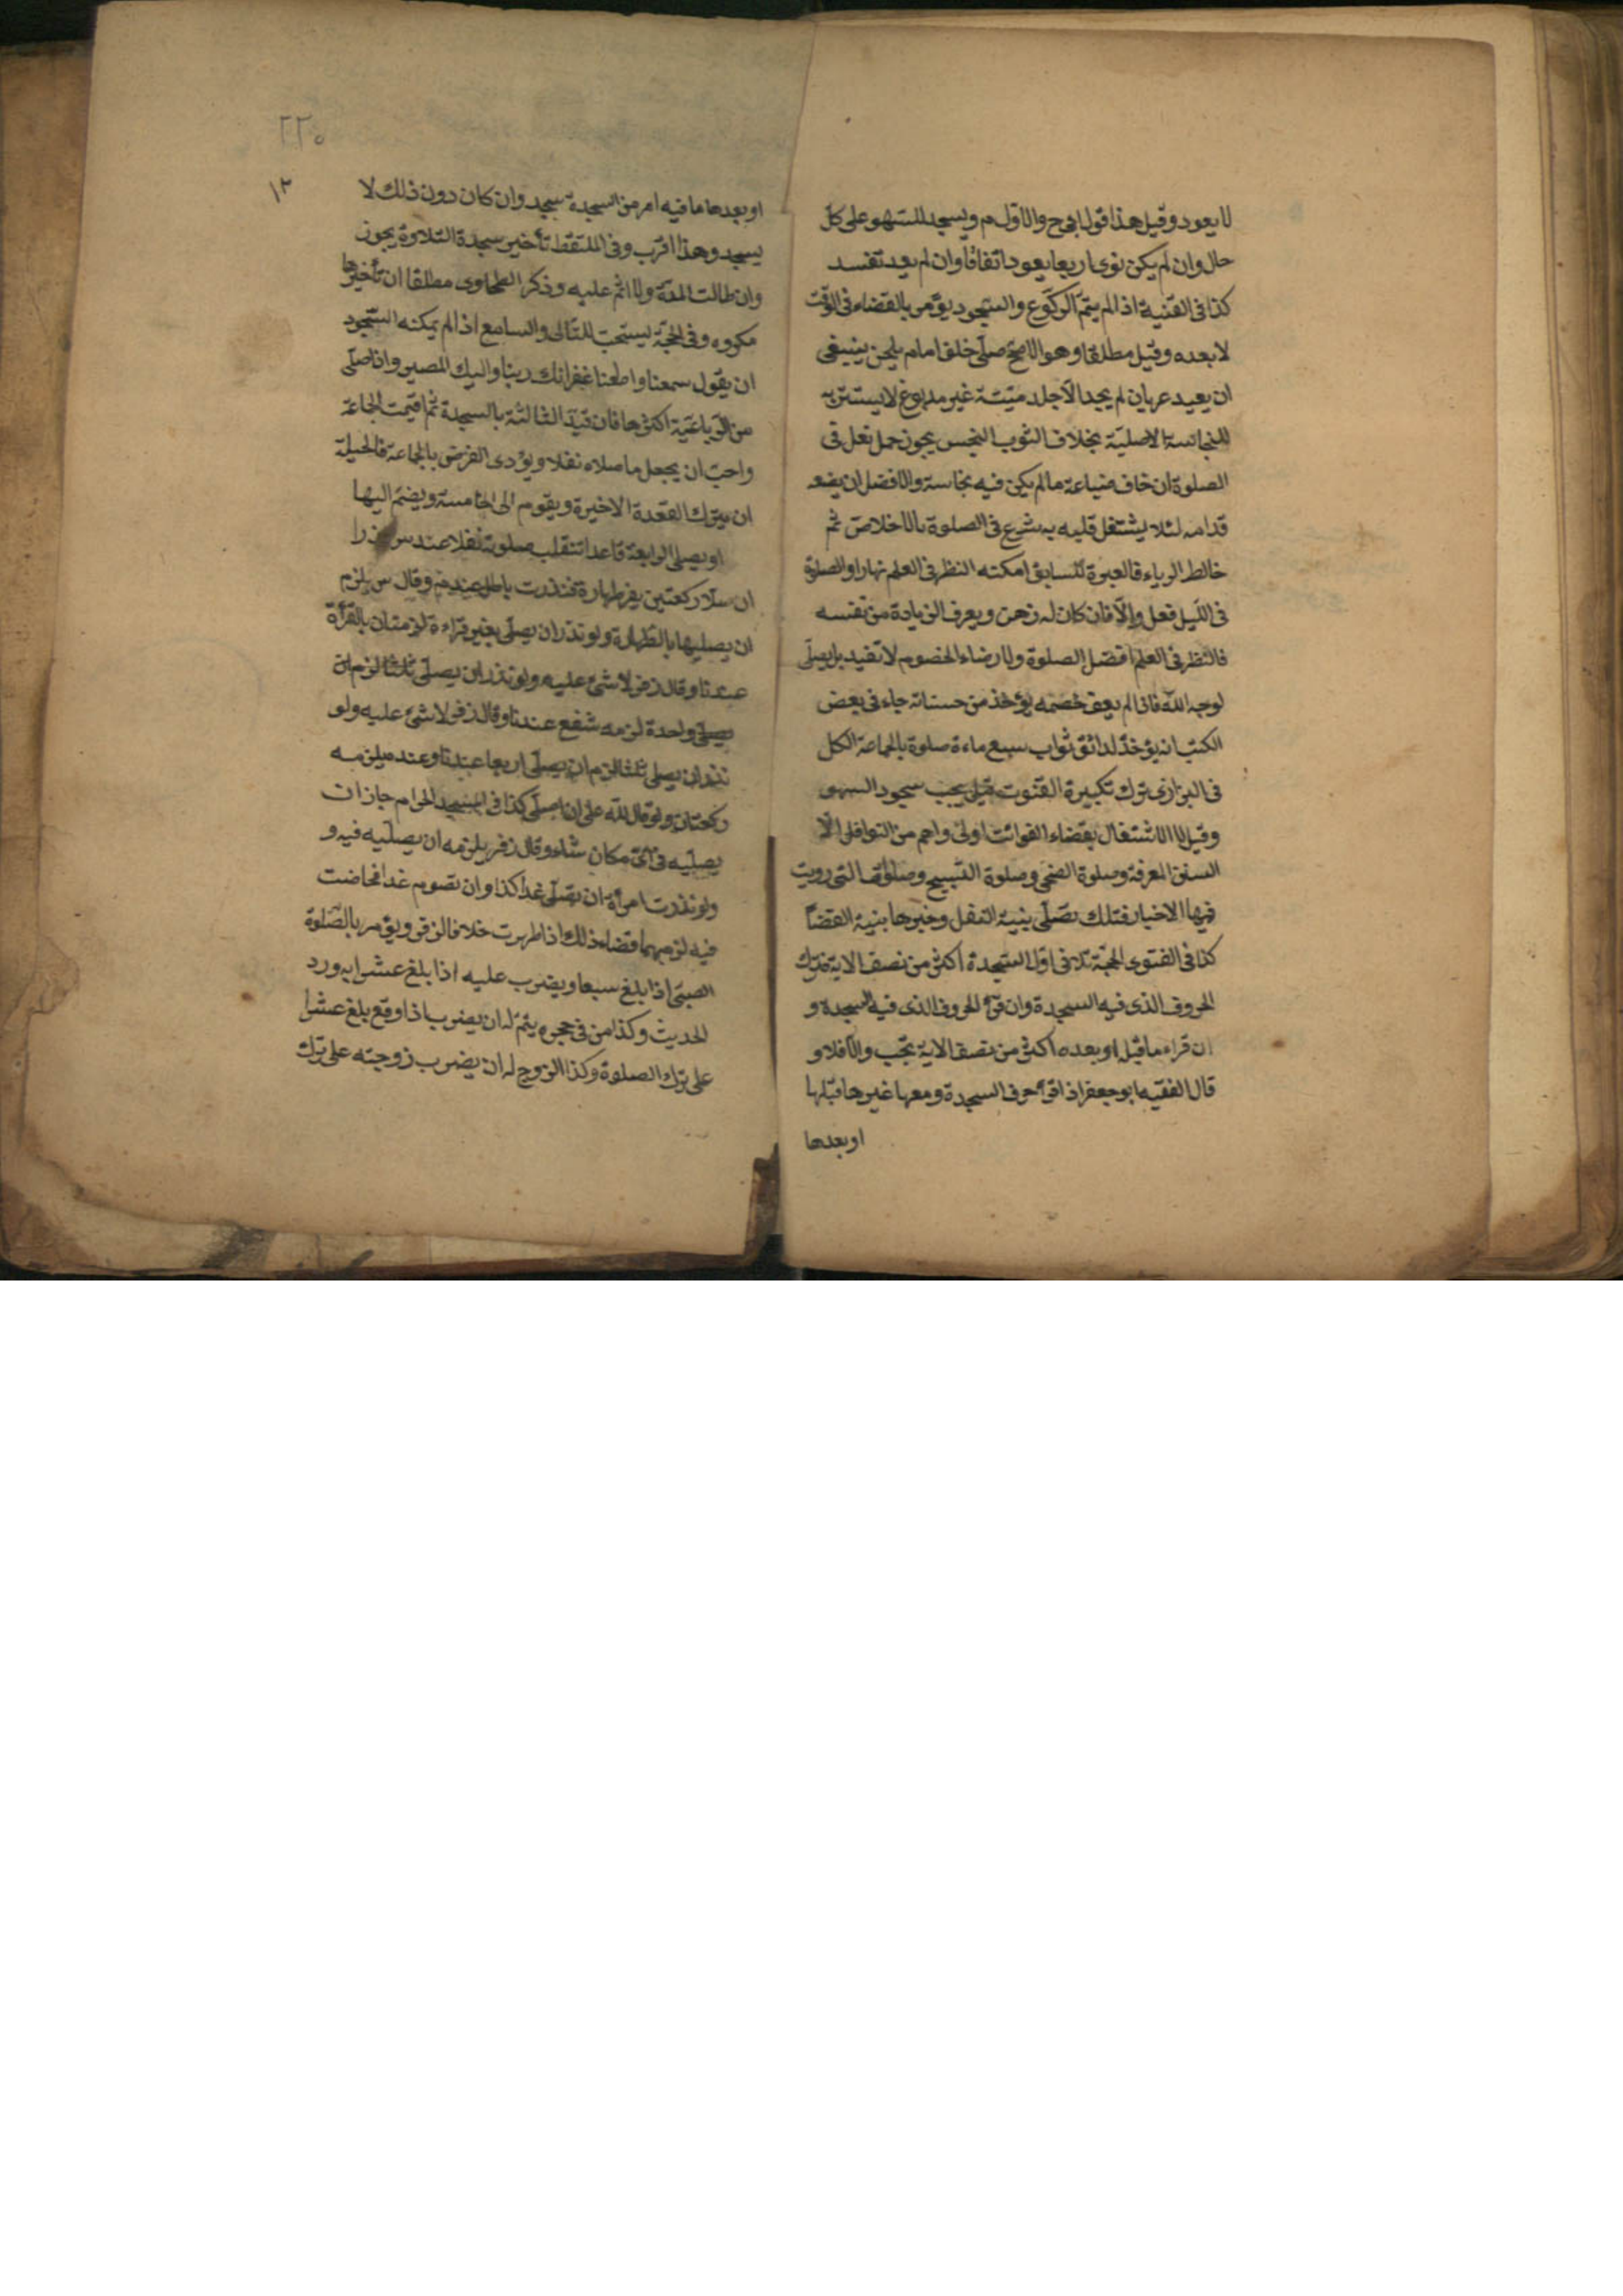 لا يعود وقيل هذا قول ابى ح والاول م ويسجد للسهو على كل
حال وان لم يكن نوى اربعا يعود اتفاقا وان لم يعد تفسد
كذا فى القنية اذا لم يتم الركوع والسجود يؤمر بالقضاء فى الوقت
لا بعده وقيل مطلقا وهو الاصح صلى خلف امام يلحن ينبغى
ان يعيد عريان لم يجد الا جلد ميتة غير مدبوغ لا يستتر به
للنجاسة الاصلية بخلاف الثوب النجس يجوز حمل نعل فى
الصلوة ان خاف ضياعه ما لم يكن فيه نجاسة والافضل ان يضعه
قدامه لئلا يشتغل قلبه به شرع فى الصلوة بالاخلاص ثم
خالط الرياء فالعبرة للسابق امكنه النظر فى العلم نهارا والصلوة
فى الليل فعل والا فان كان له ذهن ويعرف الزيادة من نفسه
فالنظر فى العلم افضل الصلوة ولارضاء الخصوم لا تفيد بل يصلى
لوجه الله فان لم يعف خصمه يؤخذ من حسناته جاء فى بعض
الكتب انه يؤخذ لدانق ثواب سبع ماءة صلوة بالجماعة الكل
فى البزازى ترك تكبيرة القنوت قيل يجب سجود السهو
وقيل لا الاشتغال بقضاء الفوائت اولى واهم من النوافل الا
السنن المعرفة وصلوة الضحى وصلوة التسبيح وصلوات التى رويت
فيها الاخبار فتلك تصلى بنية النفل وغيرها بنية القضا
كذا فى الفتوى الحجة تلا فى اول السجدة اكثر من نصف الاية وترك
الحروف الذى فيه السجدة وان قرأ الحروف الذى فيه السجدة و
ان قراء ما قبل او بعده اكثر من نصف الاية تجب والا فلا و
قال الفقيه ابو جعفر اذا قرأ حرف السجدة ومعها غيرها قبلها
او بعدها
٢٢٠
١٢
او بعدها ما فيه امر من السجدة سجد وان كان دون ذلك لا
يسجد وهذا اقرب وفى الملتقط تأخير سجدة التلاوة يجوز
وان طالت المدة ولا اثم عليه وذكر الطحاوى مطلقا ان تأخيرها
مكروه وفى الحجة يستحب للتالى والسامع اذا لم يمكنه السجود
ان يقول سمعنا واطعنا غفرانك ربنا واليك المصير واذا صلى
من الرباعية اكثرها فان قيد الثالثة بالسجدة ثم اقيمت الجماعة
واحب ان يجعل ما صلاه نفلا ويؤدى الفرض بالجماعة فالحيلة
ان يترك القعدة الاخيرة ويقوم الى الخامسة ويضم اليها
او يصلى الرابعة قاعدا تنقلب صلوته نفلا عند س
ركعتين بغير طهارة فنذرت باطل عند م وقال س يلزم
ان يصليها بالطهارة ولو نذر ان يصلى بغير قراءة لزمتان بالقرأة
عندنا وقال زفر لا شئ عليه ولو نذر ان يصلى ثلثا لزم
يصلى واحدة لزمه شفع عندنا وقال زفر لا شئ عليه ولو
نذر ان يصلى ثلثا لزم ان يصلى اربعا عندنا وعنده يلزمه
ركعتان ولو قال لله على ان اصلى كذا فى المسجد الحرام جاز ان
يصليه فى اى مكان شاء وقال زفر يلزمه ان يصليه فيه و
ولو نذرت امرأة ان تصلى غدا كذا وان تصوم غدا فحاضت
فيه لزمهما قضاء ذلك اذا طهرت خلافا لزفر ويؤمر بالصلوة
الصبى اذا بلغ سبعا ويضرب عليه اذا بلغ عشرا به ورد
الحديث وكذا من فى حجره يتم له ان يضرب اذا وقع بلغ عشرا
على ترك الصلوة وكذا الزوج له ان يضرب زوجته على ترك